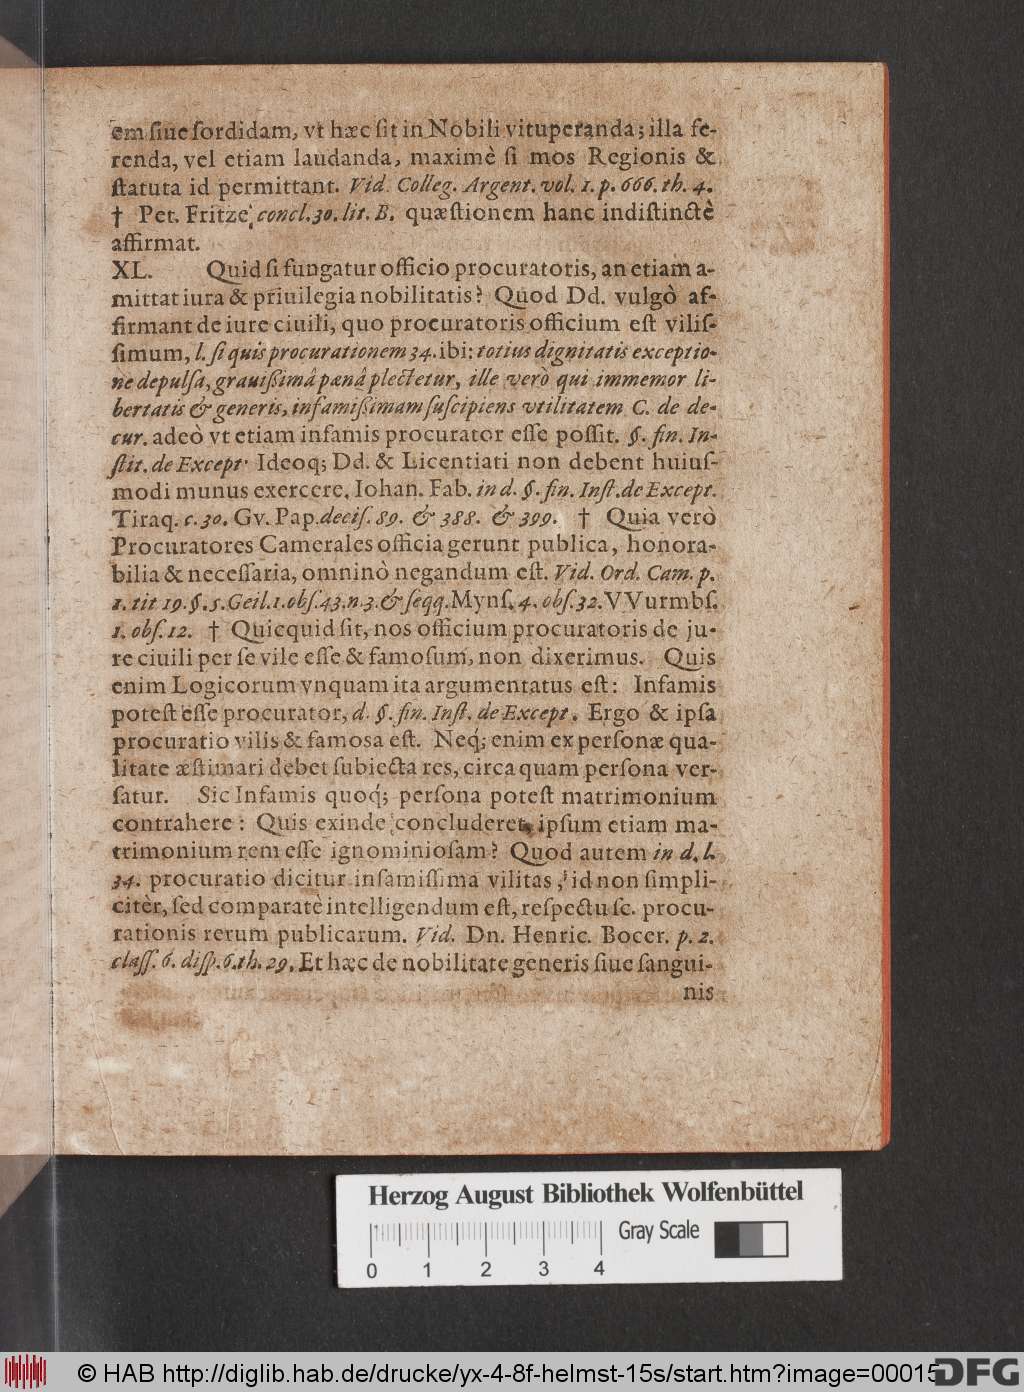 em ſiue ſordidam, vt hæc ſit in Nobili vituperanda; illa fe-
renda, vel etiam laudanda, maximè ſi mos Regionis &
ſtatuta id permittant. Vid. Colleg. Argent. vol. 1. p. 666. th. 4.
† Pet. Fritze, concl. 30. lit. B. quæſtionem hanc indiſtinctè
affirmat.
XL. Quid ſi fungatur officio procuratoris, an etiam a-
mittat iura & priuilegia nobilitatis? Quod Dd. vulgò af-
firmant de iure ciuili, quo procuratoris officium eſt viliſ-
ſimum, l. ſi quis procurationem 34. ibi: totius dignitatis exceptio-
ne depulſa, grauißimâ pœnâ plectetur, ille verò qui immemor li-
bertatis & generis, infamißimam ſuſcipiens vtilitatem C. de de-
cur. adeò vt etiam infamis procurator eſſe poſſit. §. fin. In-
ſtit. de Except. Ideoq; Dd. & Licentiati non debent huiuſ-
modi munus exercere. Iohan. Fab. in d. §. fin. Inſt. de Except.
Tiraq. c. 30. Gv. Pap. deciſ. 89. & 388. & 399. † Quia verò
Procuratores Camerales officia gerunt publica, honora-
bilia & neceſſaria, omninò negandum eſt. Vid. Ord. Cam. p.
1. tit 19. §. 5. Geil. 1. obſ. 43. n. 3. & ſeqq. Mynſ. 4. obſ. 32. VVurmbſ.
1. obſ. 12. † Quicquid ſit, nos officium procuratoris de ju-
re ciuili per ſe vile eſſe & famoſum, non dixerimus. Quis
enim Logicorum vnquam ita argumentatus eſt: Infamis
poteſt eſſe procurator, d. §. fin. Inſt. de Except. Ergo & ipſa
procuratio vilis & famosa eſt. Neq; enim ex perſonæ qua-
litate æſtimari debet ſubiecta res, circa quam perſona ver-
ſatur. Sic Infamis quoq; perſona poteſt matrimonium
contrahere: Quis exinde concluderet, ipſum etiam ma-
trimonium rem eſſe ignominioſam? Quod autem in d. l.
34. procuratio dicitur infamiſſima vilitas, id non ſimpli-
citèr, ſed comparatè intelligendum eſt, reſpectu ſc. procu-
rationis rerum publicarum. Vid. Dn. Henric. Bocer. p. 2.
claſſ. 6. diſp. 6. th. 29. Et hæc de nobilitate generis ſiue ſangui-
nis
Herzog August Bibliothek Wolfenbüttel
Gray Scale
0 1 2 3 4
© HAB http://diglib.hab.de/drucke/yx-4-8f-helmst-15s/start.htm?image=00015
DFG